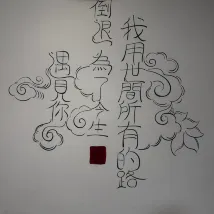 我用世間所有的路
倒退為了今生
遇見你